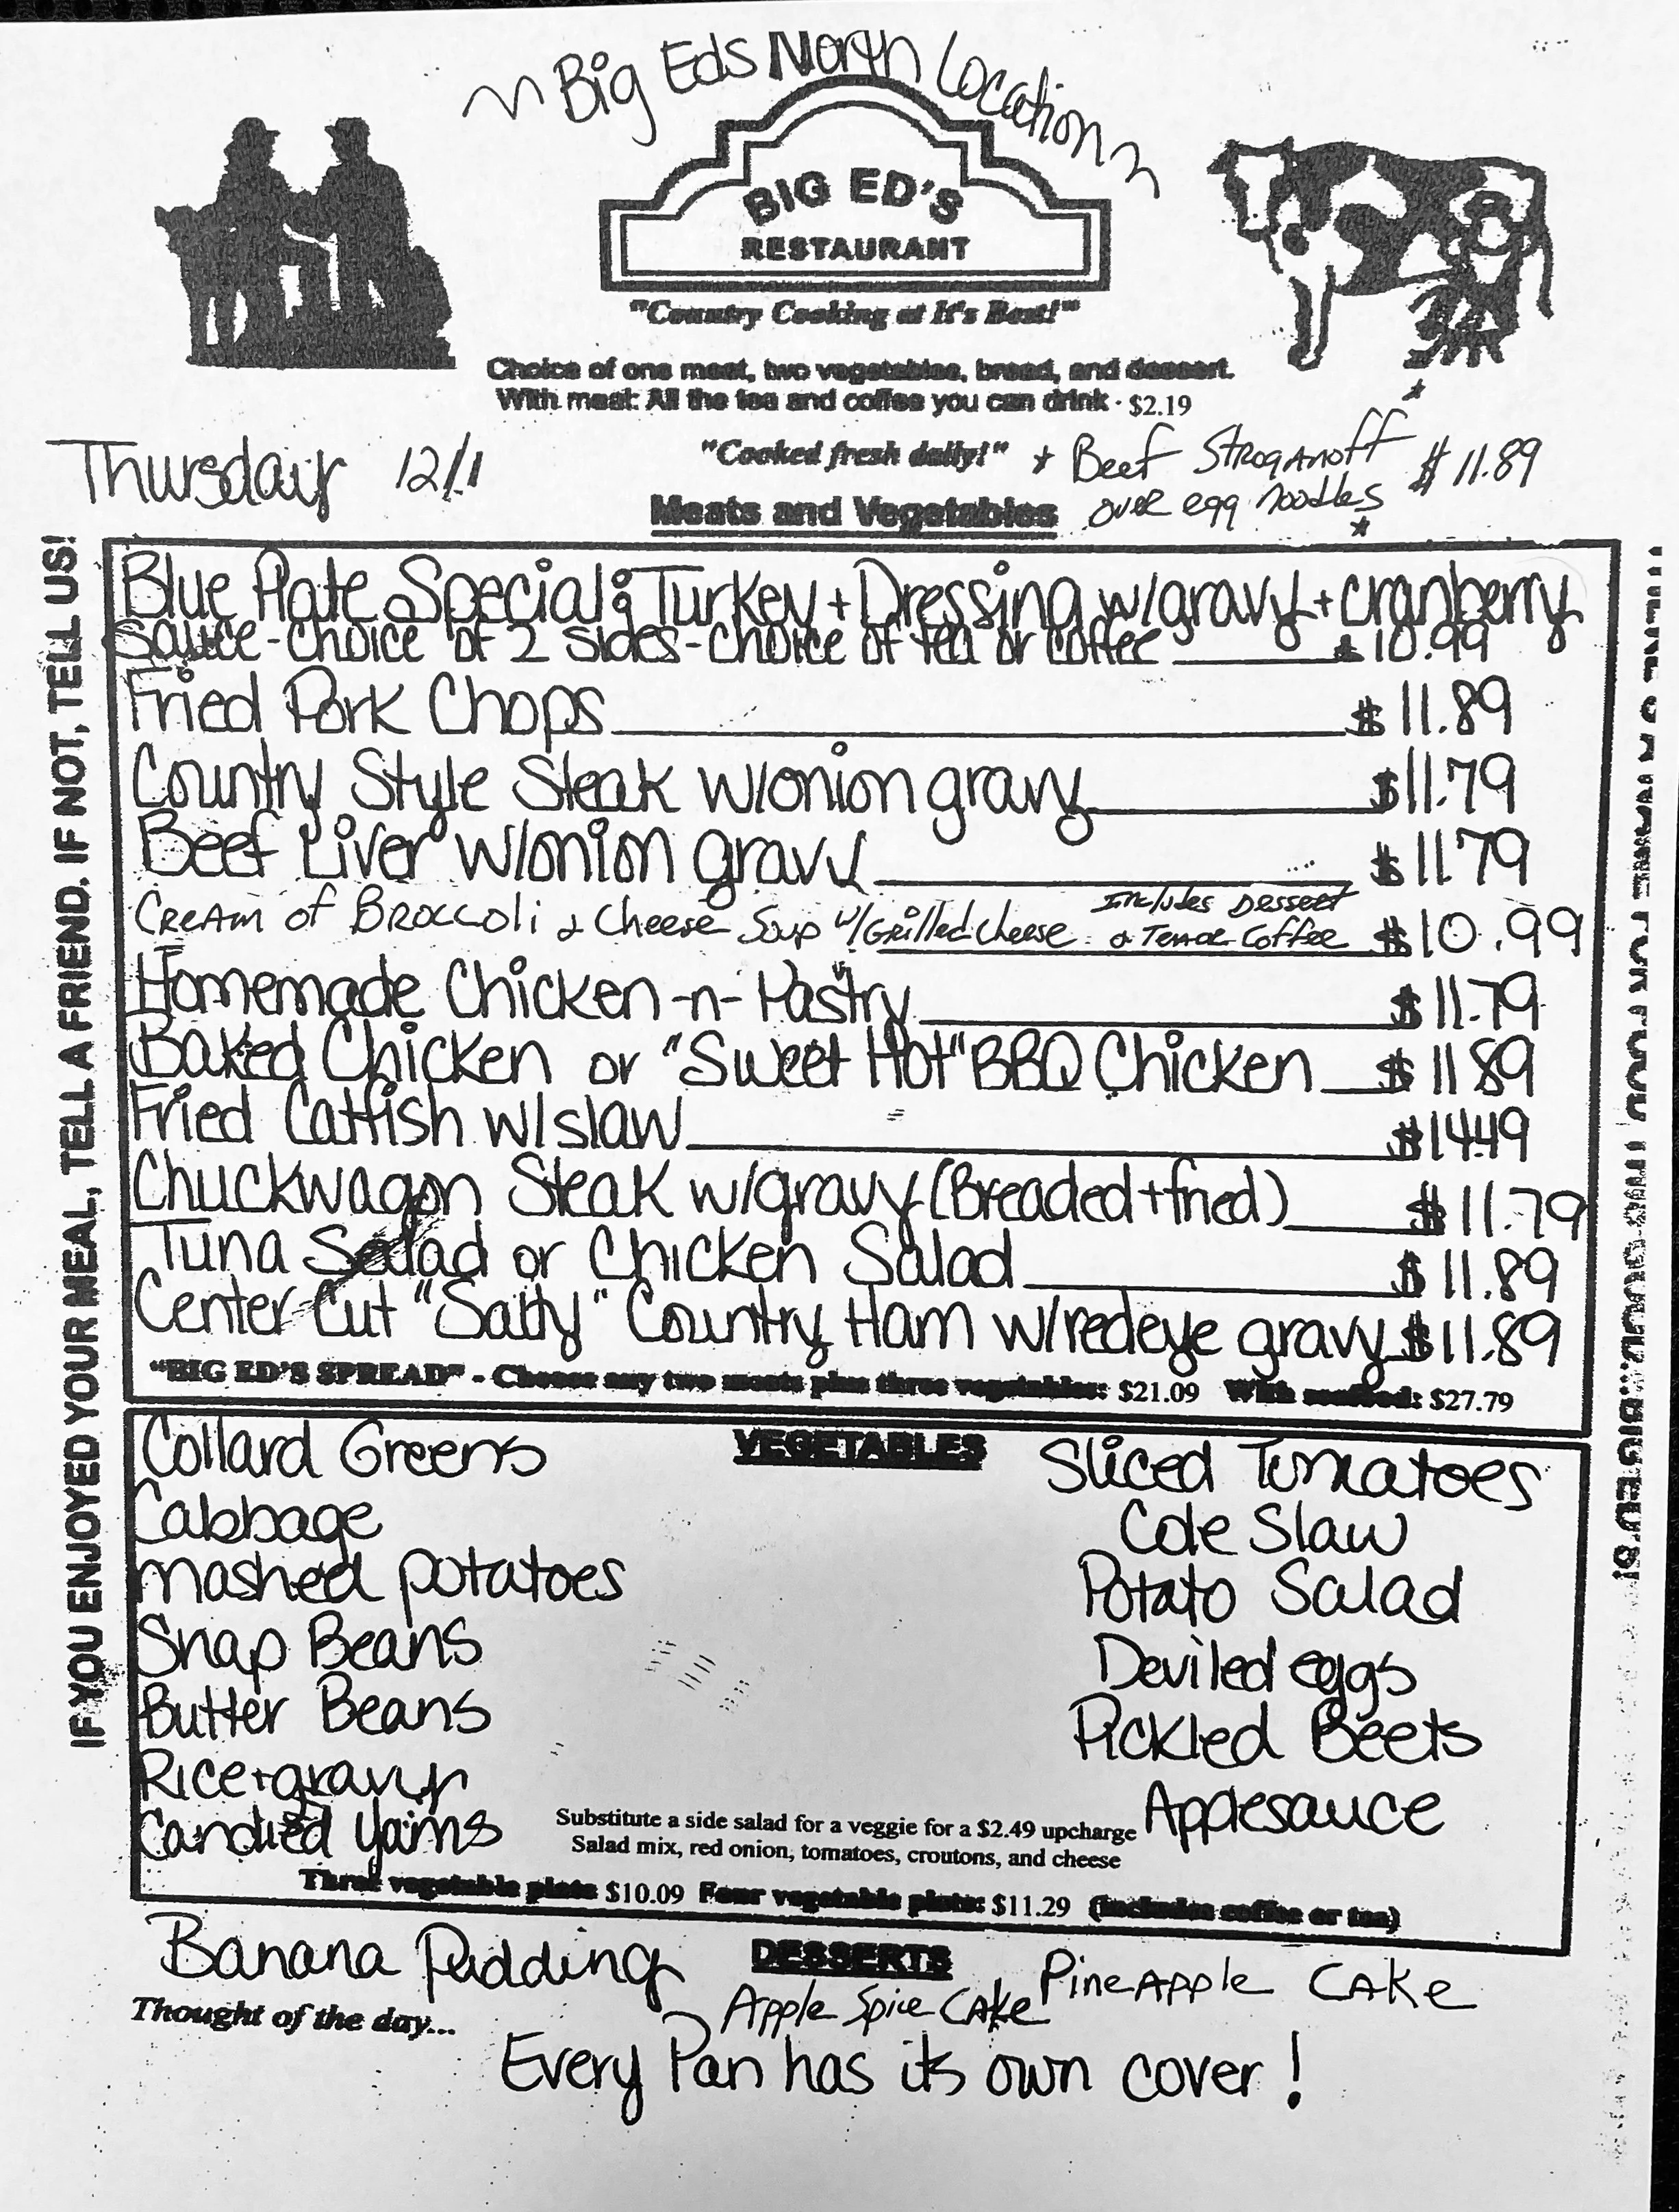 ~ Big Eds North Location ~
BIG ED'S
RESTAURANT
"Country Cooking at It's Best!"
Choice of one meat, two vegetables, bread, and dessert.
With meat: All the tea and coffee you can drink - $2.19
Thursday 12/1
"Cooked fresh daily!"
* Beef Stroganoff $11.89
over egg noodles *
Meats and Vegetables
Blue Plate Special: Turkey + Dressing w/gravy + cranberry
Sauce - choice of 2 sides - choice of tea or coffee $10.99
Fried Pork Chops $11.89
Country Style Steak w/onion gravy $11.79
Beef Liver w/onion gravy $11.79
Cream of Broccoli & Cheese Soup w/Grilled Cheese Includes Dessert & Tea or Coffee $10.99
Homemade Chicken -n- Pastry $11.79
Baked Chicken or "Sweet Hot" BBQ Chicken $11.89
Fried Catfish w/slaw $14.49
Chuckwagon Steak w/gravy (Breaded + fried) $11.79
Tuna Salad or Chicken Salad $11.89
Center Cut "Salty" Country Ham w/redeye gravy $11.89
"BIG ED'S SPREAD" - Choose any two meats plus three vegetables: $21.09 With seafood: $27.79
VEGETABLES
Collard Greens
Cabbage
mashed potatoes
Snap Beans
Butter Beans
Rice + gravy
Candied Yams
Sliced Tomatoes
Cole Slaw
Potato Salad
Deviled eggs
Pickled Beets
Applesauce
Substitute a side salad for a veggie for a $2.49 upcharge
Salad mix, red onion, tomatoes, croutons, and cheese
Three vegetable plate $10.09 Four vegetable plate: $11.29 (includes coffee or tea)
DESSERTS
Banana Pudding
Apple Spice Cake
PineApple Cake
Thought of the day...
Every Pan has its own cover!
IF YOU ENJOYED YOUR MEAL, TELL A FRIEND. IF NOT, TELL US!